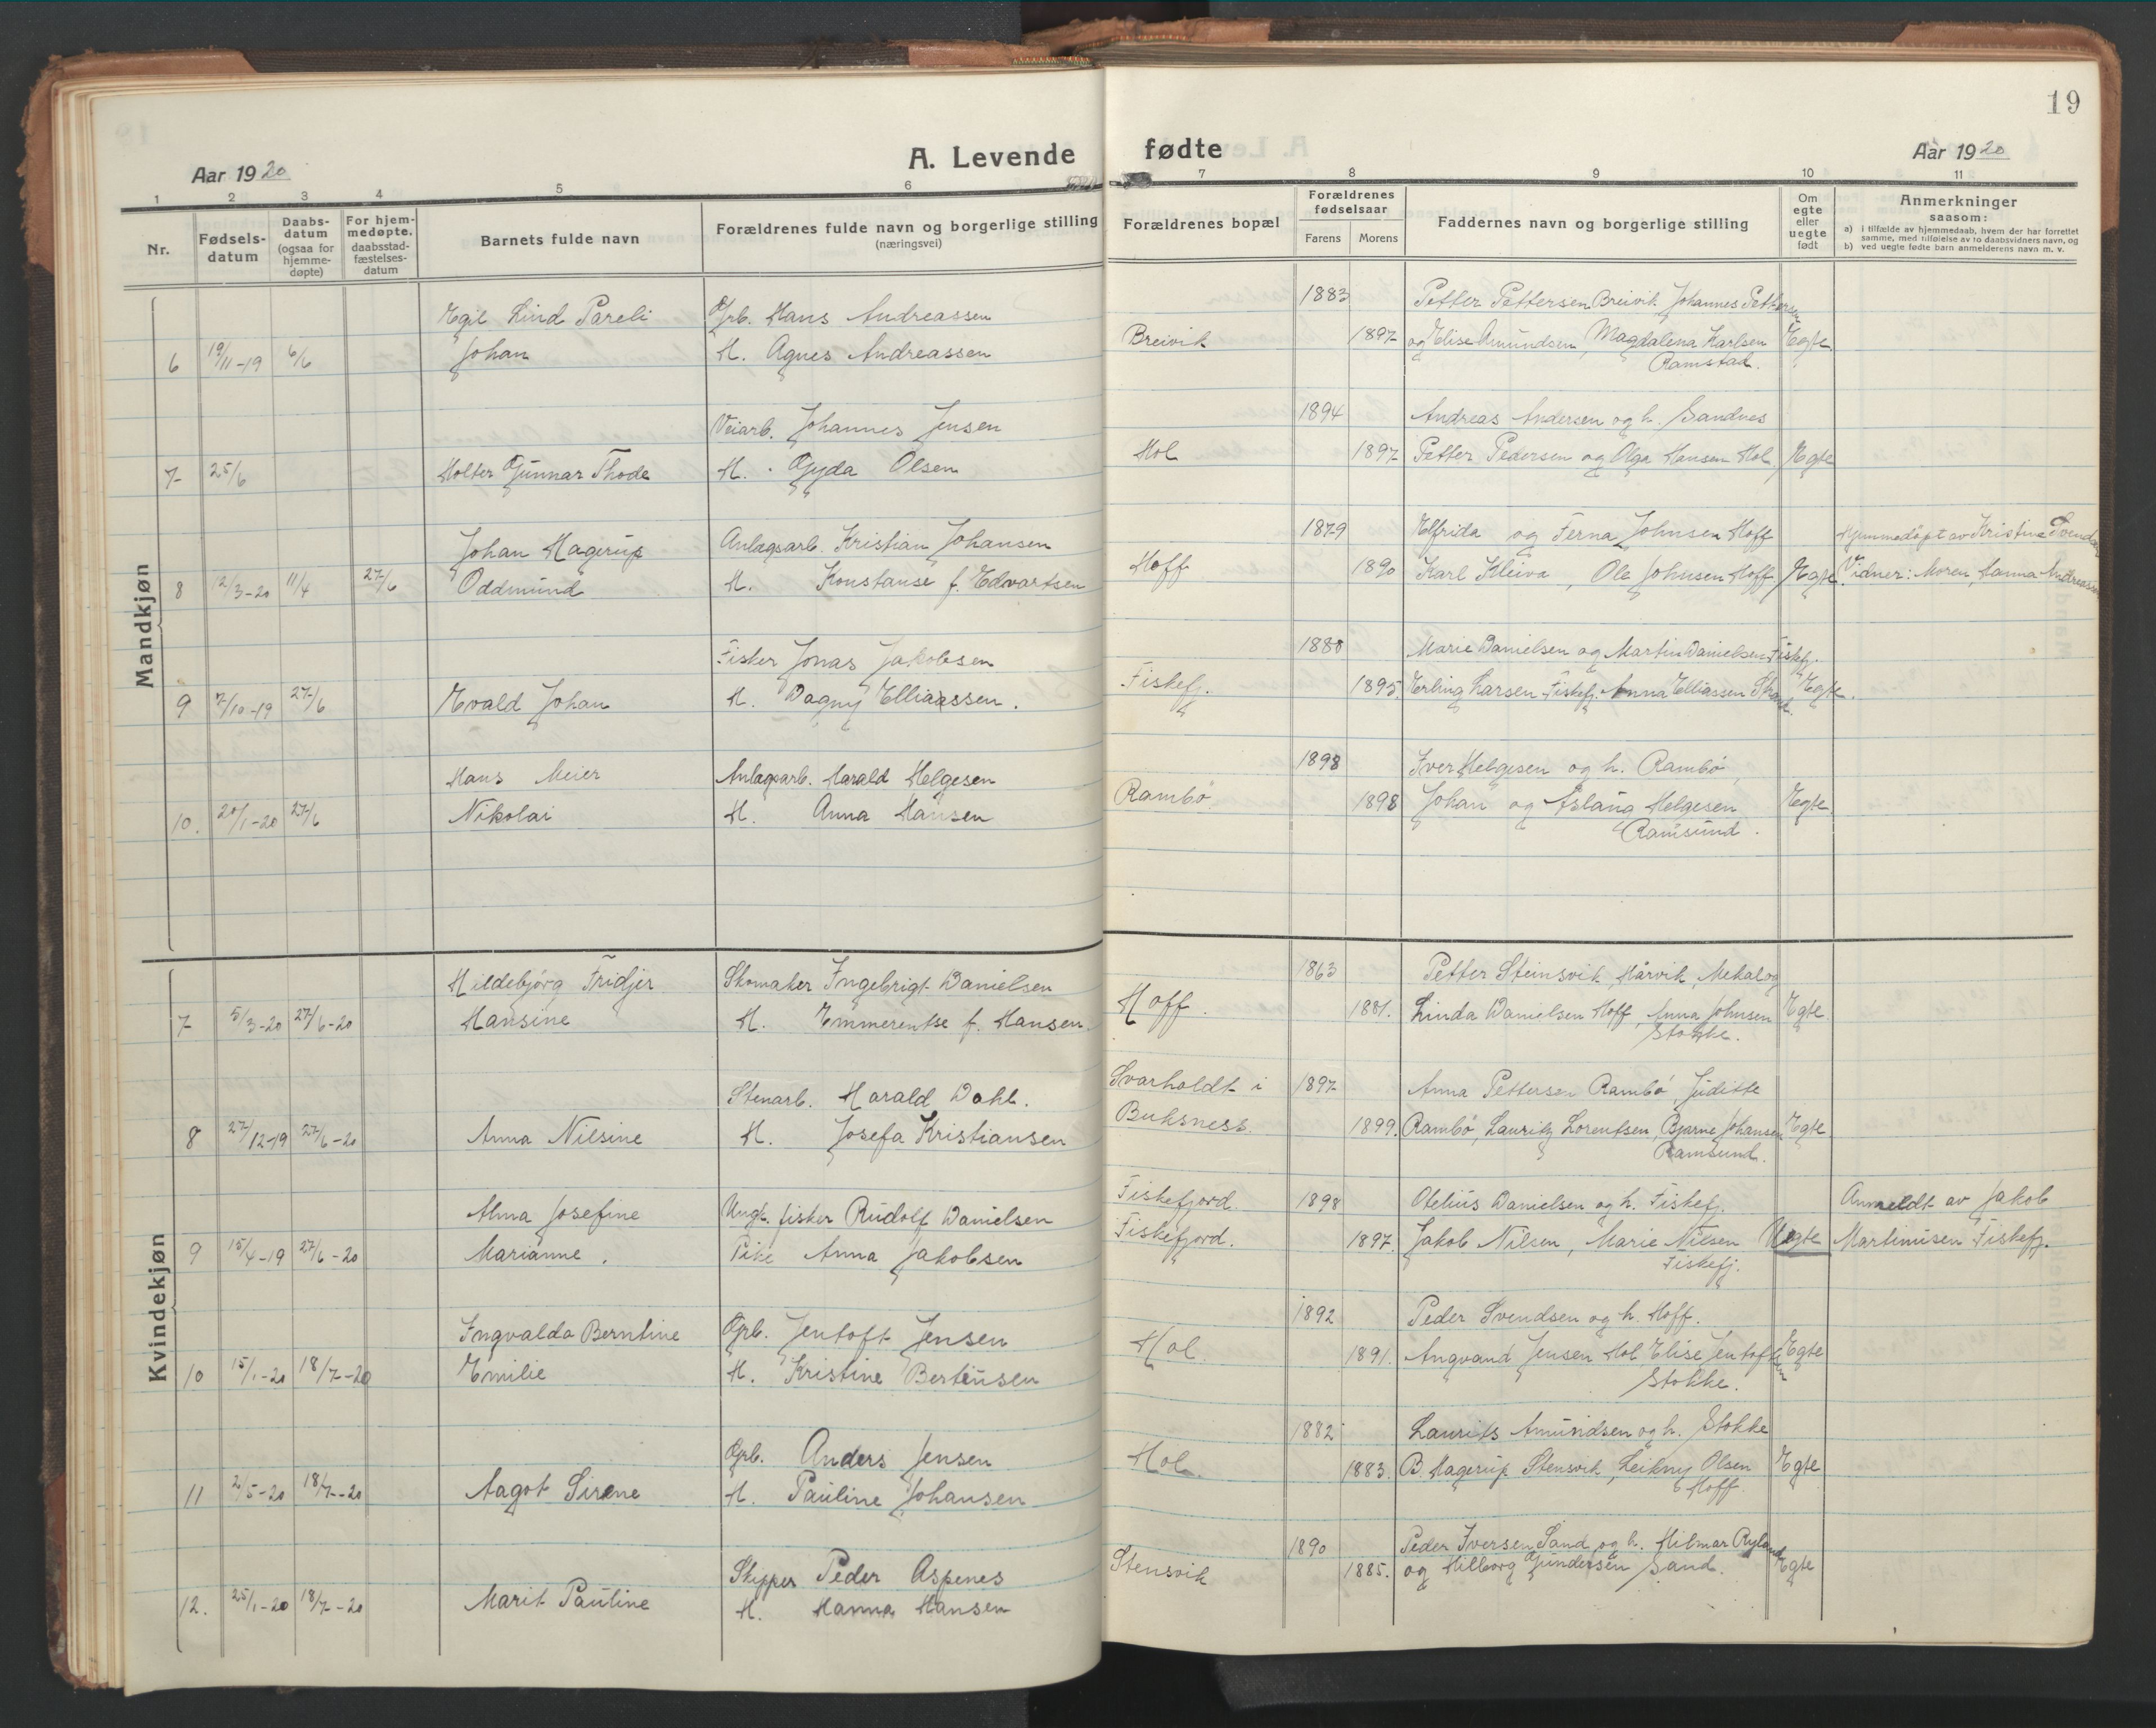 19
Aar 1920
A. Levende fødte
Aar 1920
1 2 3 4 5 6 7 8 9 10 11
Nr.
Fødsels-datum
Daabs-datum (ogsaa for hjemme-døpte)
For hjem-medøpte. daabsstad-fæstelses-datum
Barnets fulde navn
Forældrenes fulde navn og borgerlige stilling (næringsvei)
Forældrenes bopæl
Forældrenes fødselsaar
Farens Morens
Faddernes navn og borgerlige stilling
Om egte eller uegte født
Anmerkninger saasom:
a) i tilfælde av hjemmedaab, hvem der har forrettet samme, med tilføielse av to daabsvidners navn, og
b) ved uegte fødte barn anmelderens navn m. v.
Mandkjøn
Egil Lind Pareli Grb. Hans Andreassen 1883 Petter Pettersen Breivik Johannes Pettersen
6 19/11-19 6/6 Johan H. Agnes Andreassen Breivik 1897 og Elise Amundsen, Magdalena Karlsen Egte.
Ramstad.
Veiarb. Johannes Jensen 1894 Andreas Andersen og h. Sandnes
7 25/6 Holter Gunnar Thode H. Gyda Olsen Hol 1897 Petter Pedersen og Olga Hansen Hol Egte
Johan Hagerup Anlægsarb. Kristian Johansen 1879 Elfrida og Ferna Johnsen Hoff Hjemmedøpt av Kristine Svendsen
8 12/3-20 11/4 27/6 Oddmund H. Konstanse f. Edvartsen Hoff 1890 Karl Kleiva, Ole Johnsen Hoff Egte. Vidner: Moren, Hanna Andreassen
Fisker Jonas Jakobsen 1888 Marie Danielsen og Martin Danielsen Fiskefj.
9 7/10-19 27/6 Evald Johan H. Dagny Elliassen. Fiskefj. 1895 Erling Larsen Fiskefj. Anna Elliassen Egte.
Hans Meier Anlægsarb. Harald Helgesen 1898 Iver Helgesen og h. Rambø,
10. 20/1-20 27/6 Nikolai H. Anna Hansen Rambø 1898 Johan og Aslaug Helgesen Egte.
Ramsund.
Kvindekjøn
Hildebjørg Fridjer Skomaker Ingebrigt Danielsen 1863 Petter Steinsvik, Hårvik, Mekal og
7 5/3-20 27/6-20 Hansine H. Emmerentse f. Hansen. Hoff. 1881. Linda Danielsen Hoff, Anna Johnsen Egte.
Stokke.
Stenarb. Harald Dahl. Svarholdt i 1897 Anna Pettersen Rambø, Juditte
8 27/12-19 27/6-20 Anna Nilsine H. Josefa Kristiansen Buksness. 1899. Rambø, Lauritz Lorentsen, Bjarne Johansen Egte.
Ramsund.
Alma Josefine Ungk. fisker Rudolf Danielsen Fiskefjord. 1898 Otelius Danielsen og h. Fiskefj. Anmeldt av Jakob
9 15/4-19 27/6-20 Marianne. Pike Anna Jakobsen Fiskefjord. 1897. Jakob Nilsen, Marie Nilsen Uegte Martinusen Fiskefj.
Fiskefj.
Ingvalda Berntine Grb. Jentoft Jensen 1892 Peder Svendsen og h. Hoff.
10 15/1-20 18/7-20 Emilie H. Kristine Berteusen Hol 1891. Angvand Jensen Hol Elise Jentoftsen Egte
Stokke.
Grb. Anders Jensen 1882 Laurits Amundsen og h. Stokke
11 2/5-20 18/7-20 Aagot Sirene H. Pauline Johansen Hol. 1883. B. Hagerup Stensvik, Leikny Olsen Egte
Hoff.
Skipper Peder Aspenes 1890 Peder Iversen Sand og h. Hilmar Ryland
12. 25/1-20 18/7-20 Marit Pauline H. Hanna Hansen Stensvik 1885. og Hilborg Gundersen Sand. Egte